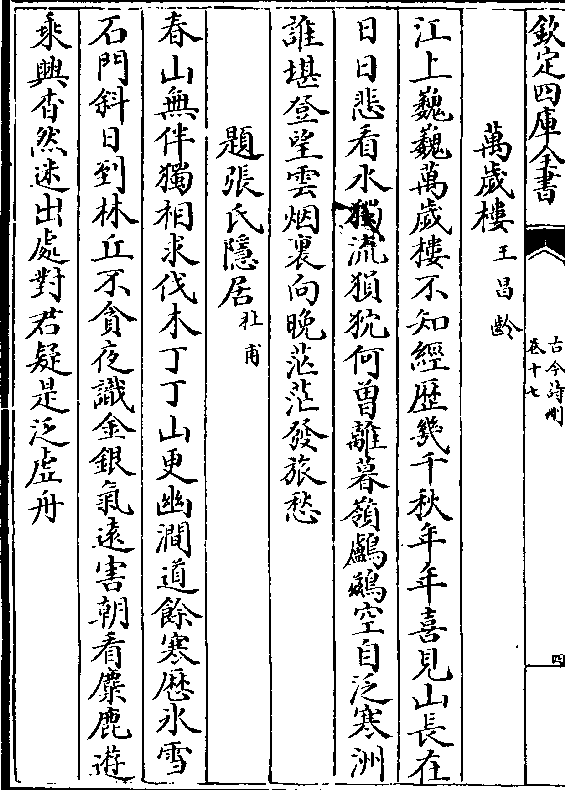 欽定四庫全書
古今詩刪
卷十七
四
萬歲樓王昌齡
江上巍巍萬歲樓不知經歷幾千秋年年喜見山長在
日日悲看水獨流猿狖何曾離暮嶺鸕鷀空自泛寒洲
誰堪登望雲烟裏向晚茫茫發旅愁
題張氏隱居杜甫
春山無伴獨相求伐木丁丁山更幽澗道餘寒歷氷雪
石門斜日到林丘不貪夜識金銀氣遠害朝看麋鹿遊
乘興杳然迷出處對君疑是泛虛舟